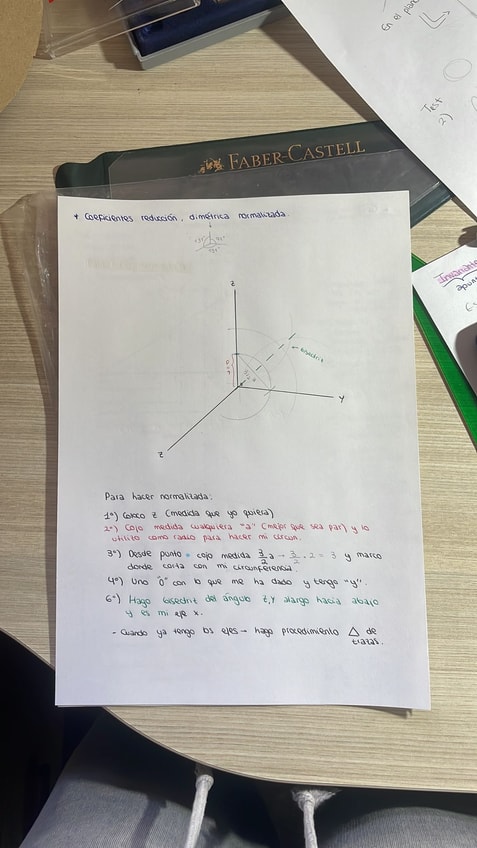 En el plan
Test
2)
FABER-CASTELL
* Coeficientes reducción, dimétrica normalizada.
z
bisectriz
y
z
Para hacer normalizada:
1º) Coloco z (medida que yo quiera)
2º) Cojo medida cualquiera "a" (mejor que sea par) y lo
utilizo como radio para hacer mi circun.
3º) Desde punto • cojo medida 3/2 a → 3/2 · 2 = 3 y marco
donde corta con mi circunferencia.
4º) Uno "0" con lo que me ha dado y tengo "y".
6º) Hago bisectriz del ángulo z,y alargo hacia abajo
y es mi eje x.
- Cuando ya tengo los ejes → hago procedimiento △ de
trazas.